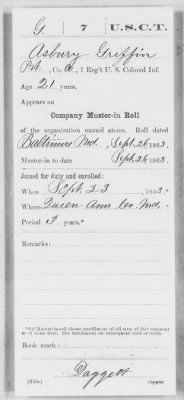 G. | 7 | U.S.C.T.
Asbury Griffin
Pvt., Co. A, 7 Reg't U. S. Colored Inf.
Age 21 years.
Appears on
Company Muster-in Roll
of the organization named above. Roll dated
Baltimore Md., Sept. 26, 1863.
Muster-in to date Sept. 26, 1863.
Joined for duty and enrolled:
When Sept. 23, 1863.*
Where Queen Ann Co. Md.
Period 3 years.*
Remarks:
Book mark:
Daggett
(356c) Copyist.